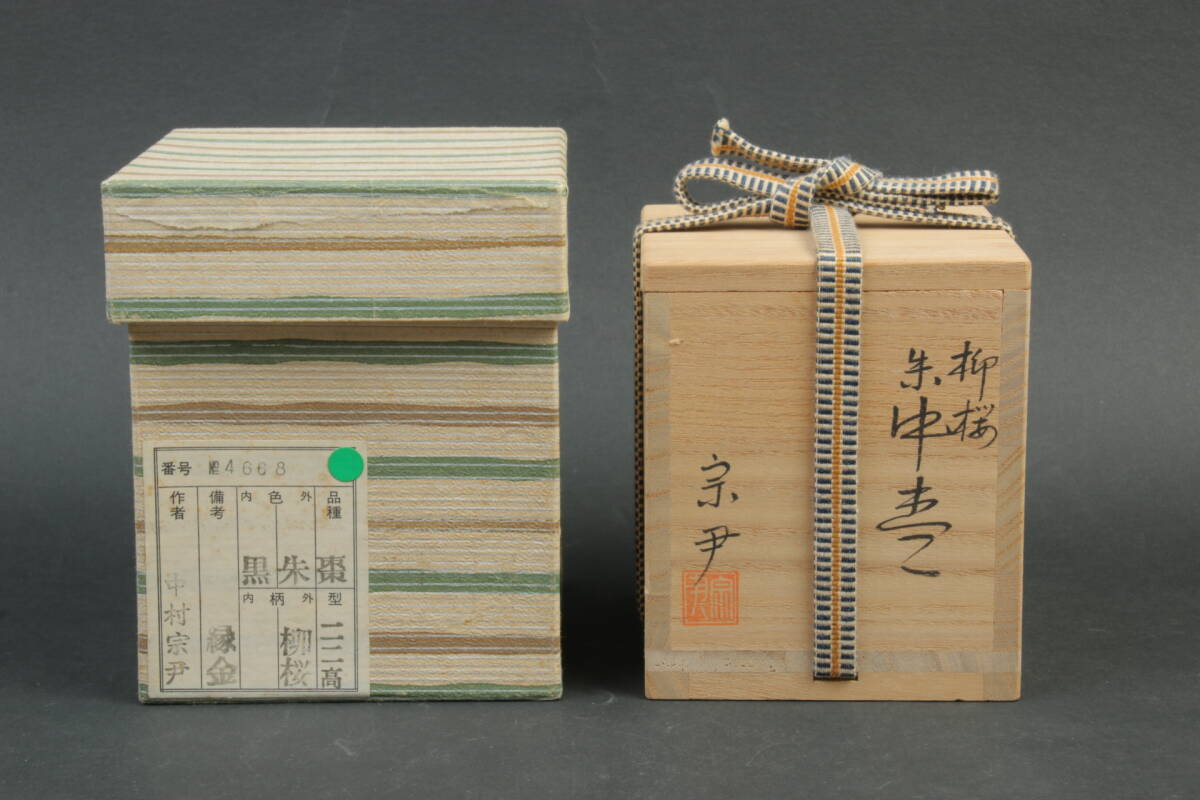 番号 4668
品種 棗
外 色 内
朱 黒
備考 縁金
作者 中村宗尹
型 高
外 柄 内
柳桜
柳桜
朱中棗
宗尹